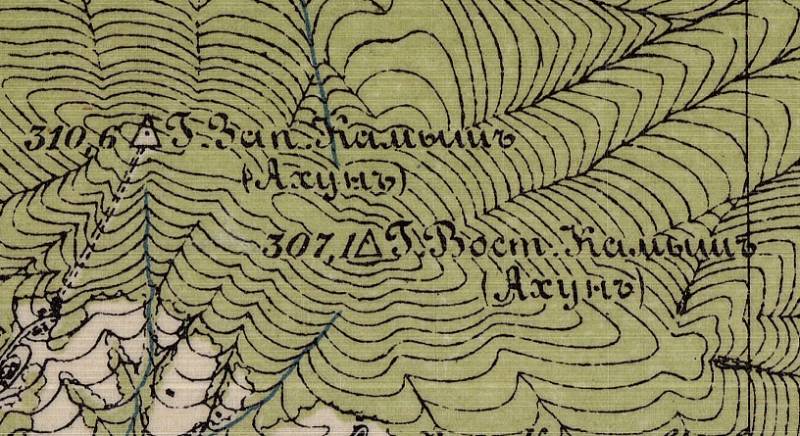 310,6 Г. Зап. Камышъ
(Ахунъ)
307,1 Г. Вост. Камышъ
(Ахунъ)